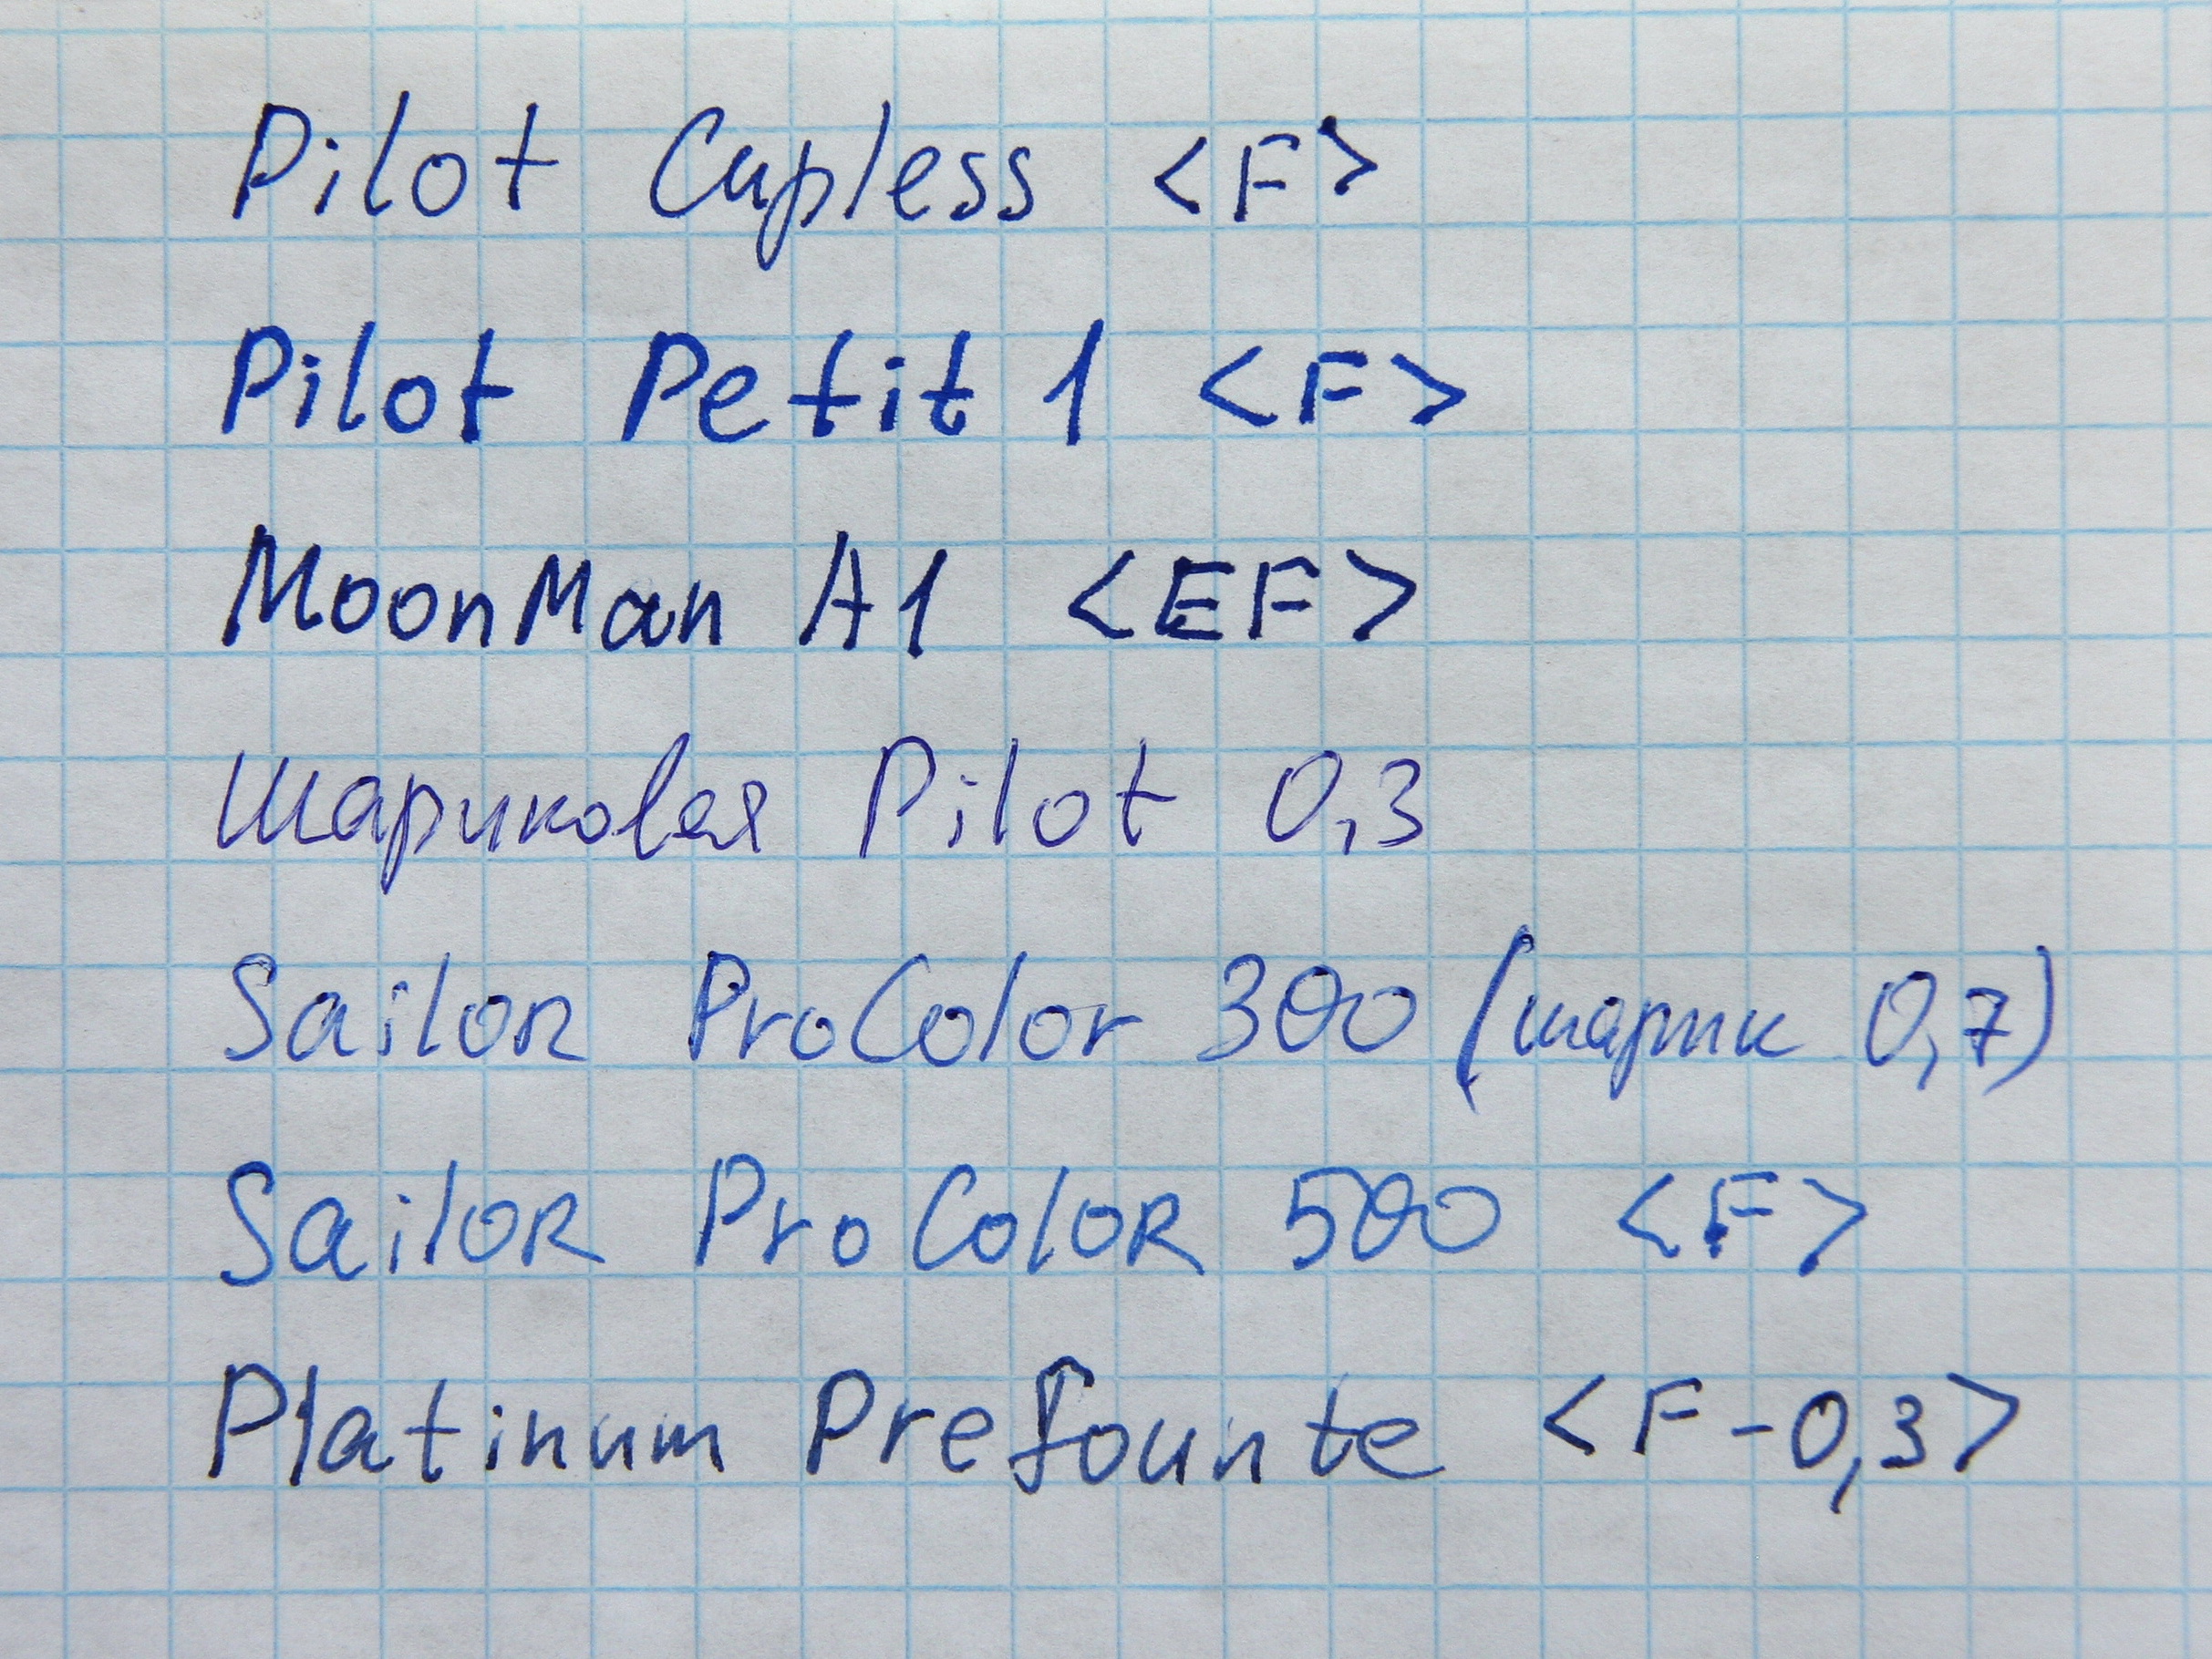 Pilot Capless <F>
Pilot Petit 1 <F>
MoonMan A1 <EF>
Шариковая Pilot 0,3
Sailor ProColor 300 (шарик 0,7)
Sailor ProColor 500 <F>
Platinum Prefounte <F-0,3>